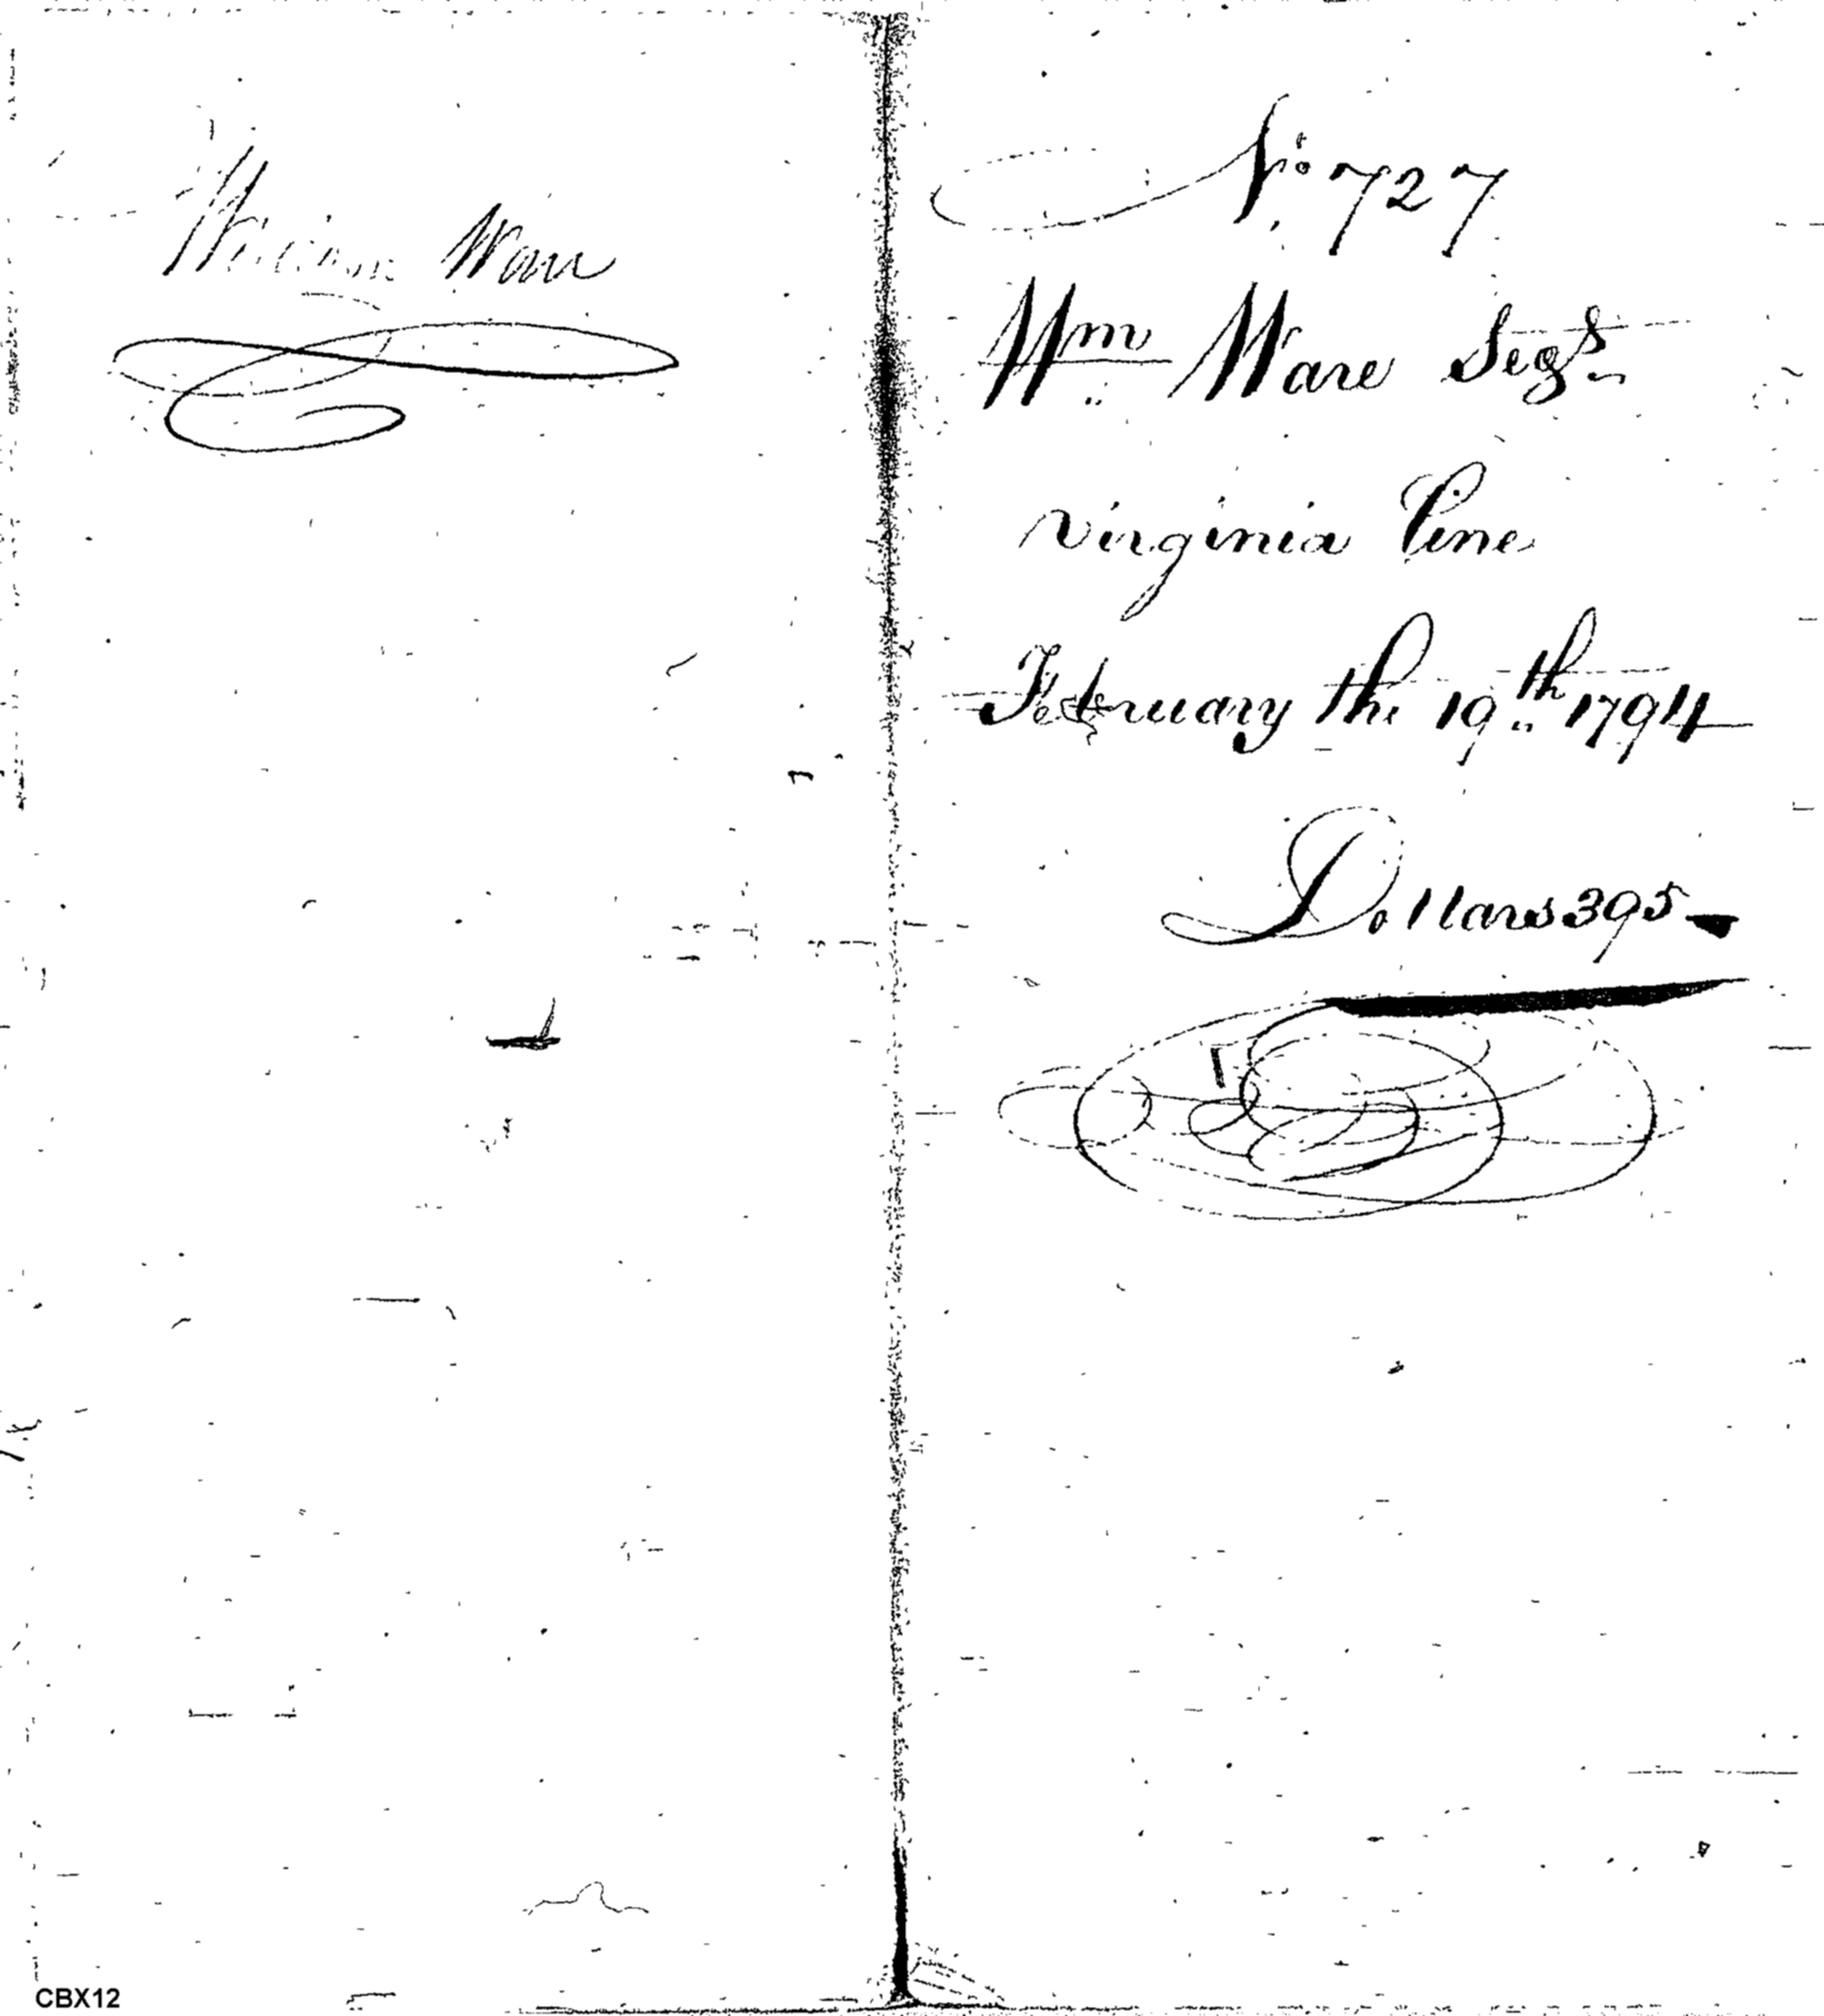 William Ware
No. 727
Wm Ware Segt
virginia Line
February the 19th 1794
Dollars 395
CBX12